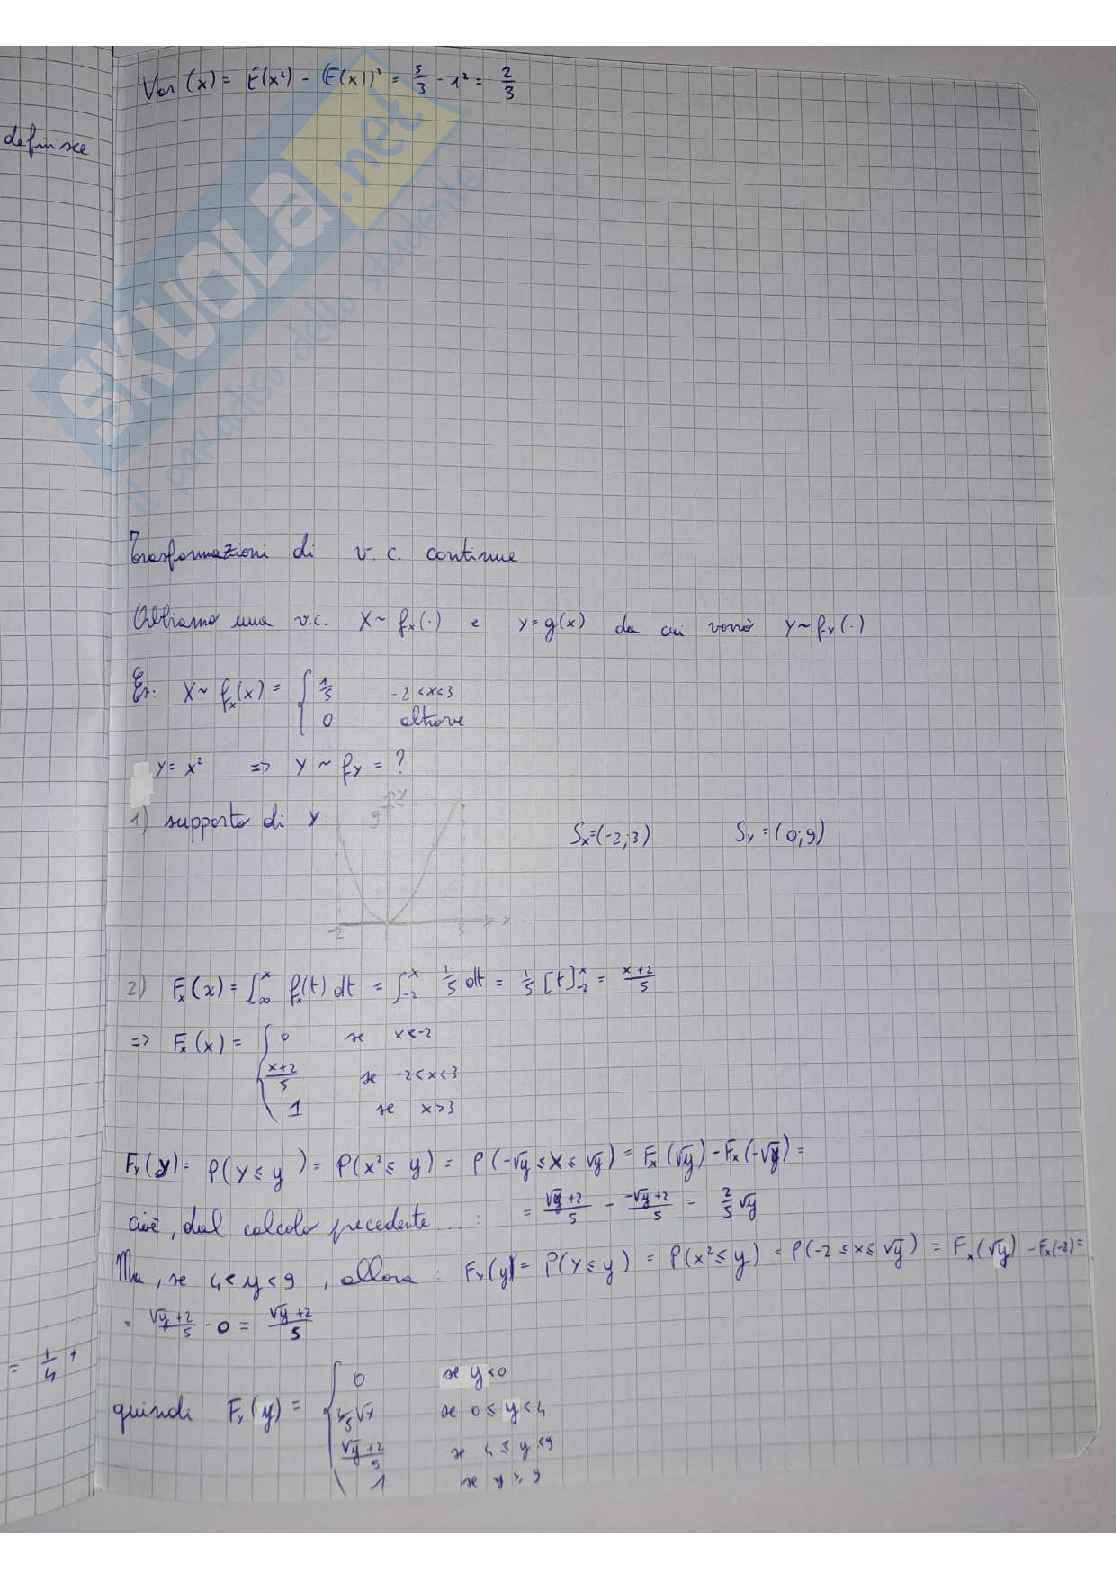 Var(x) = E(x²) - (E(x))² = 5/3 - 1² = 2/3
definisce
SKUOLA.net
il paradiso dello studente
Trasformazioni di v.c. continue
Abbiamo una v.c. X ~ fx(·) e Y = g(x) da cui vorrò Y ~ fY(·)
Es: X ~ fx(x) = { 1/5 -2 < x < 3
0 altrove
Y = x² => Y ~ fY = ?
1) supporto di Y
9
-2 3 x
Sx = (-2;3) SY = (0;9)
2) Fx(x) = ∫_∞^x fx(t) dt = ∫_-2^x 1/5 dt = 1/5 [t]_-2^x = x+2/5
=> Fx(x) = { 0 se x<-2
x+2/5 se -2<x<3
1 se x>3
FY(y) = P(Y ≤ y) = P(x² ≤ y) = P(-√y ≤ x ≤ √y) = Fx(√y) - Fx(-√y) =
cioè, dal calcolo precedente...: = √y+2/5 - -√y+2/5 = 2/5 √y
Ma, se 4<y<9, allora: FY(y) = P(Y ≤ y) = P(x² ≤ y) = P(-2 ≤ x ≤ √y) = Fx(√y) - Fx(-2) =
= √y+2/5 - 0 = √y+2/5
= 1/4 +
quindi FY(y) = { 0 se y<0
2/5 √y se 0 ≤ y < 4
√y+2/5 se 4 ≤ y < 9
1 se y ≥ 9